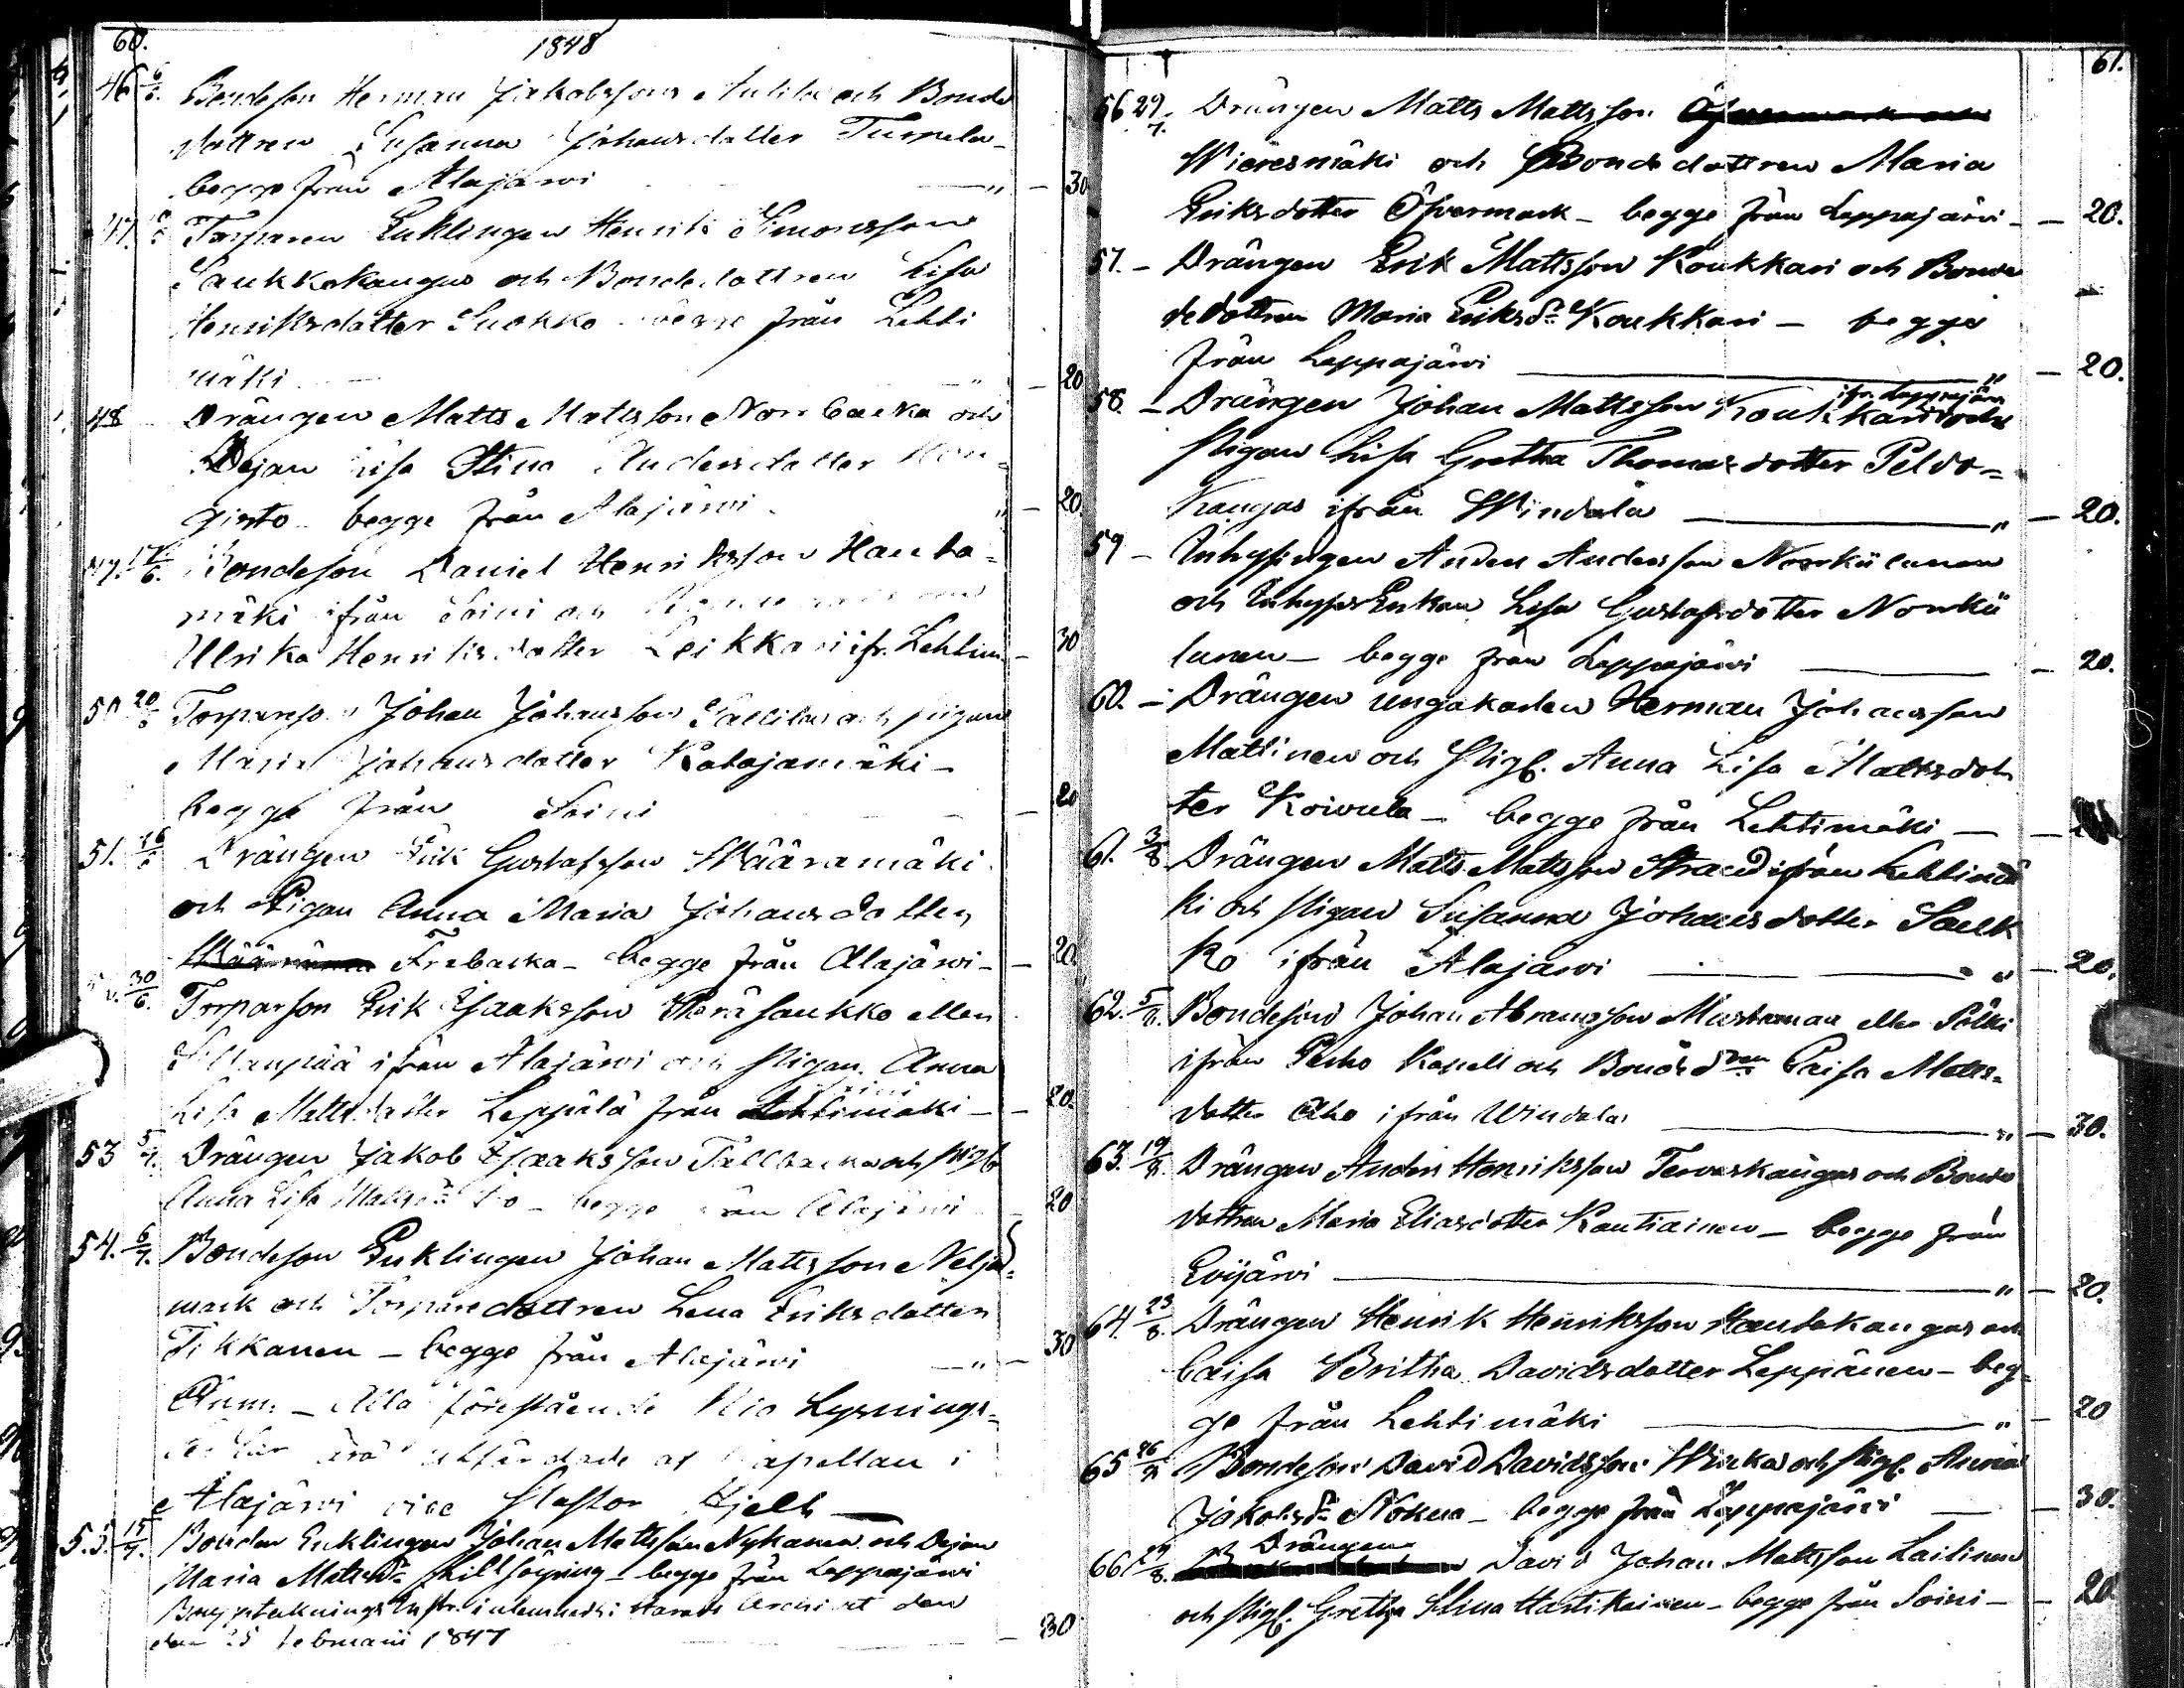 60.
1848
46 6/6. Bondeson Herman Jakobsson Anlila och Bonde
dottren Susanna Johansdotter Turpela
begge från Alajärwi — " — 30
47. Torparen Enklingen Henrik Simonsson
Saukkokangas och Bondedottren Lisa
Henriksdotter Suokko begge från Lehti
mäki — " — 20
48 Drängen Matts Mattsson Norrbacka och
Dejan Lisa Stina Andersdotter Hon=
gisto begge från Alajärwi " — 20
49. 17/6. Bondeson Daniel Henriksson Hauta=
mäki ifrån Soini och
Ulrika Henriksdotter Leikkari ifr. Lehtim — 30
50 20/6 Torpareson Johan Johansson och pigan
Maria Johansdotter Katajamäki —
begge från Soini — 20
51. 26/6 Drängen Erik Gustafsson Määrämäki
och Pigan Anna Maria Johansdotter
Frebacka — begge från Alajärwi — 20.
52. 30/6. Torparson Erik Isaaksson Peräsaukko eller
Sillanpää ifrån Alajärwi och Pigan Anna
Lisa Mattsdotter Leppälä från Soini Lehtimäki — 20.
53 5/7. Drängen Jakob Isaksson Tallbacka och pig.
Anna Lisa Mattsdr — begge från Alajärwi 20
54. 6/7. Bondeson Enklingen Johan Mattsson Nelja=
mark och Torparedottren Lena Eriksdotter
Tikkanen — begge från Alajärwi — " — 30
Anm. — Alla förestående Nio Lysnings=
utfärdade af Capellan i
Alajärwi vice Pastor Hjelt —
55. 15/7. Bonden Enklingen Johan Mattsson Nykänen och Dejan
Maria Mattsdr — begge från Lappajärwi
Bouppteknings Instr. inlemnadt i Harads Archivet den
den 25 Februarii 1847 — 30
61.
56 29/7. Drängen Matts Mattsson Öfvermark och
Wieresmäki och Bondedottren Maria
Eriksdotter Öfvermark — begge från Lappajärwi — 20.
57. — Drängen Erik Mattsson Koukkari och Bon
dedottren Maria Eriksdr Koukkari — begge
från Lappajärwi — " — 20.
58. — Drängen Johan Mattsson Koukkari ifr. Lappajärvi och
Pigan Lisa Gretha Thomasdotter Peldo=
kangas ifrån Windala — " — 20.
59 — Inhysingen Anders Andersson Norrkiilunen
och Inhyses Enkan Lisa Gustafsdotter Norrkii
lunen — begge från Lappajärwi — 20.
60. — Drängen ungakarlen Herman Johansson
Mattinen och Pig. Anna Lisa Mattsdot
ter Koivula — begge från Lehtimäki —
61. 3/8 Drängen Matts Mattsson Strand ifrån Lehtimä
ki och Pigan Susanna Johansdotter Sauk
ko ifrån Alajärwi — " — 20.
62. 5/8. Bondeson Johan Abramsson Mustamaa eller Pölki
ifrån Perho Kapell och Bondedtren Caisa Matts=
dotter Aho ifrån Windala — " — 30.
63. 19/8. Drängen Anders Henriksson Terwaskangas och Bonde
dottren Maria Eliasdotter Rautiainen — begge från
Evijärvi — " — 20.
64. 23/8. Drängen Henrik Henriksson Hautakangas och
Caisa Britha Davidsdotter Leppänen — beg=
ge från Lehtimäki — " — 20
65 26/8 Bondeson David Davidsson Wiska och Pig. Anna
Jakobsdr Nokua — begge från Lappajärwi — 30.
66. 27/8. Drängen David Johan Mattsson Lailinen
och Pig. Gretha Stina Hartikainen — begge från Soini — 20